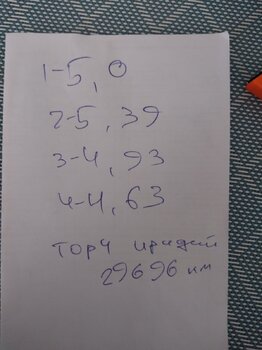 1-5,0
2-5,39
3-4,93
4-4,63
торч иридий
29696 км